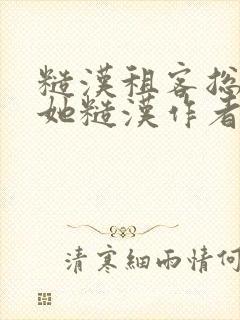 糙漢租客總
她糙漢作者
清寒細雨情何